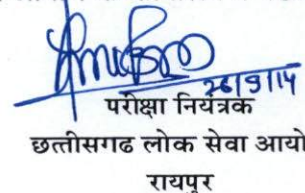 26/9/14
परीक्षा नियंत्रक
छत्तीसगढ लोक सेवा आयो
रायपुर